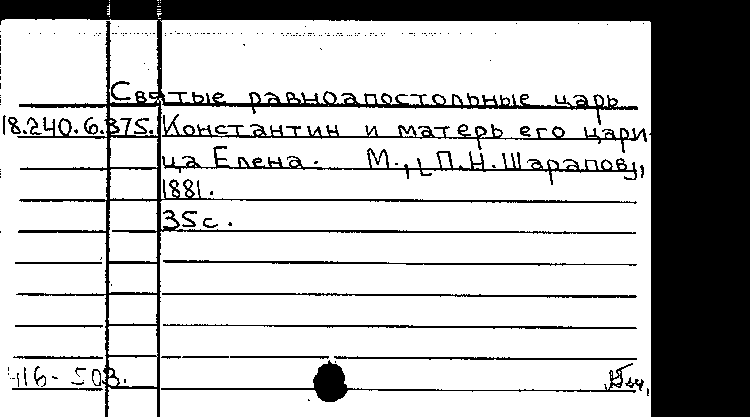 Святые равноапостольные царь
18.240.6.375. Константин и матерь его цари-
ца Елена. М., [П.Н.Шарапов],
1881.
35с.
416-503.